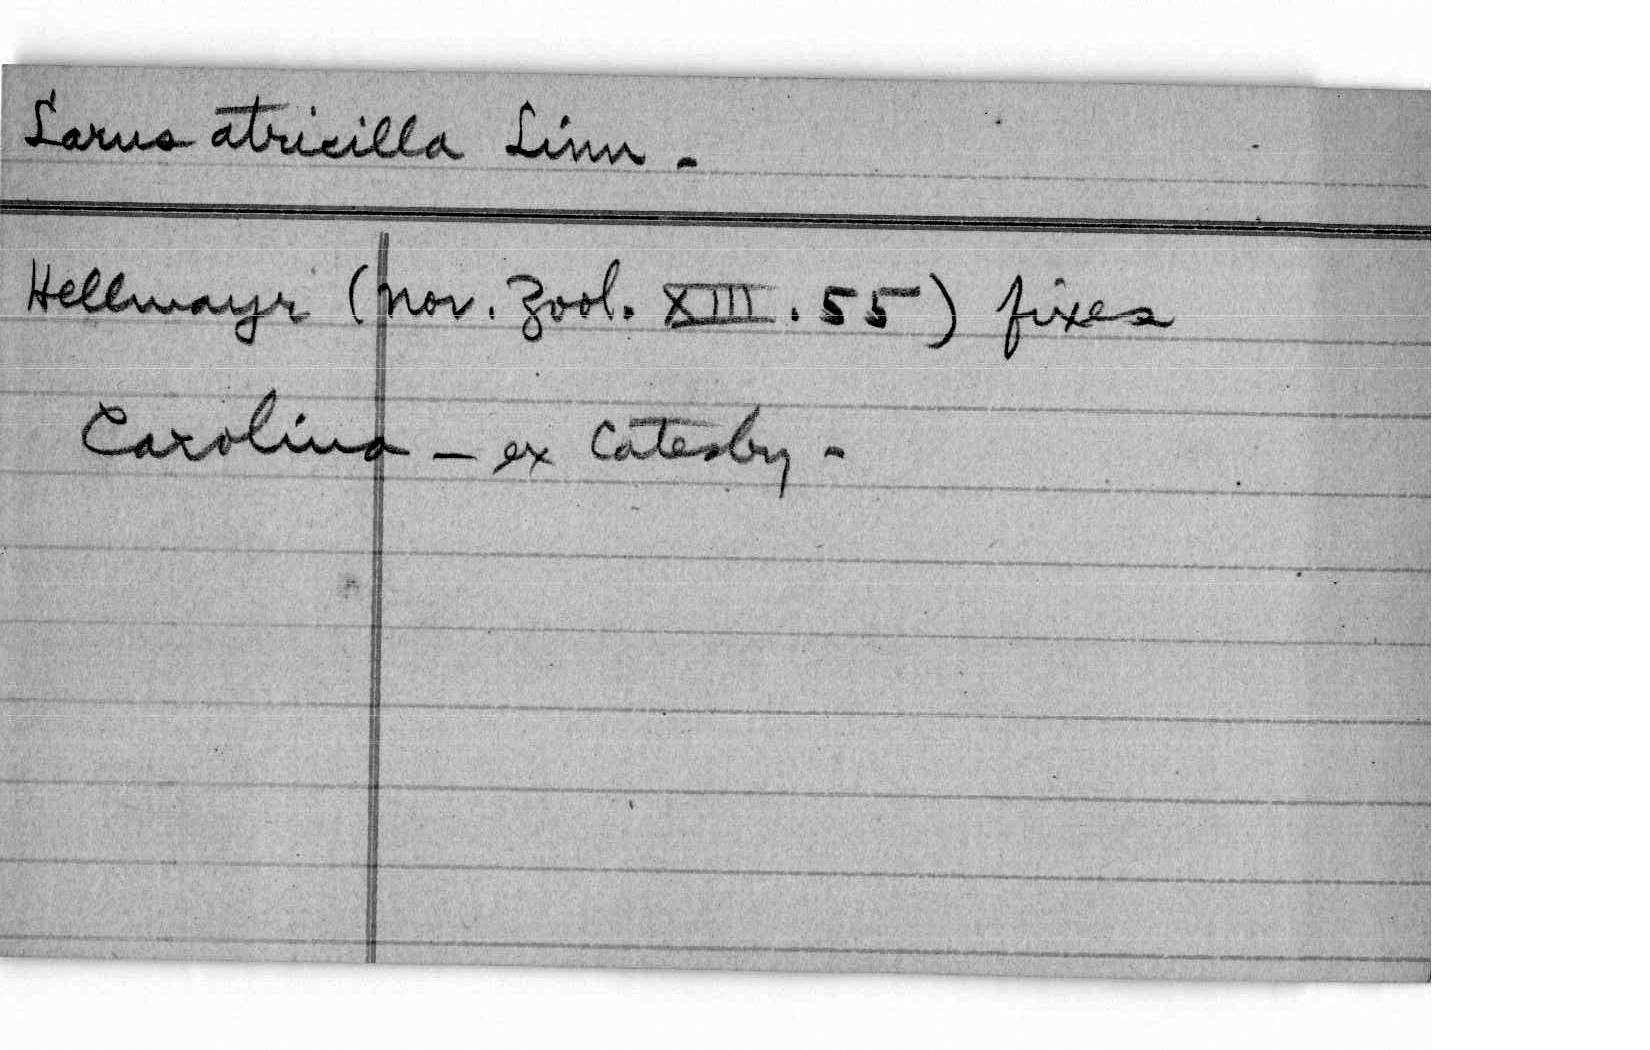 Larus atricilla Linn -
Hellmayr (Nov. Zool. XIII. 55) fixes
Carolina - ex Catesby -